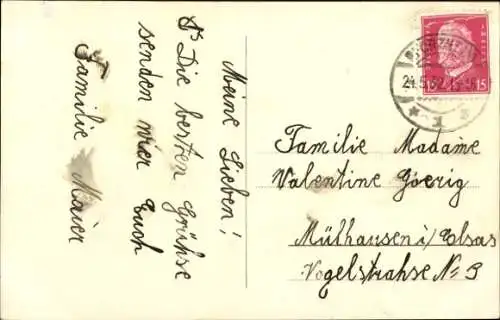 Meine Lieben!
Die besten Grühse
senden wier Euch
Familie Maier
15
24.5.32.
Familie Madame
Valentine Goerig
Mülhausen i/ Elsas
Vogelstrahse No 9